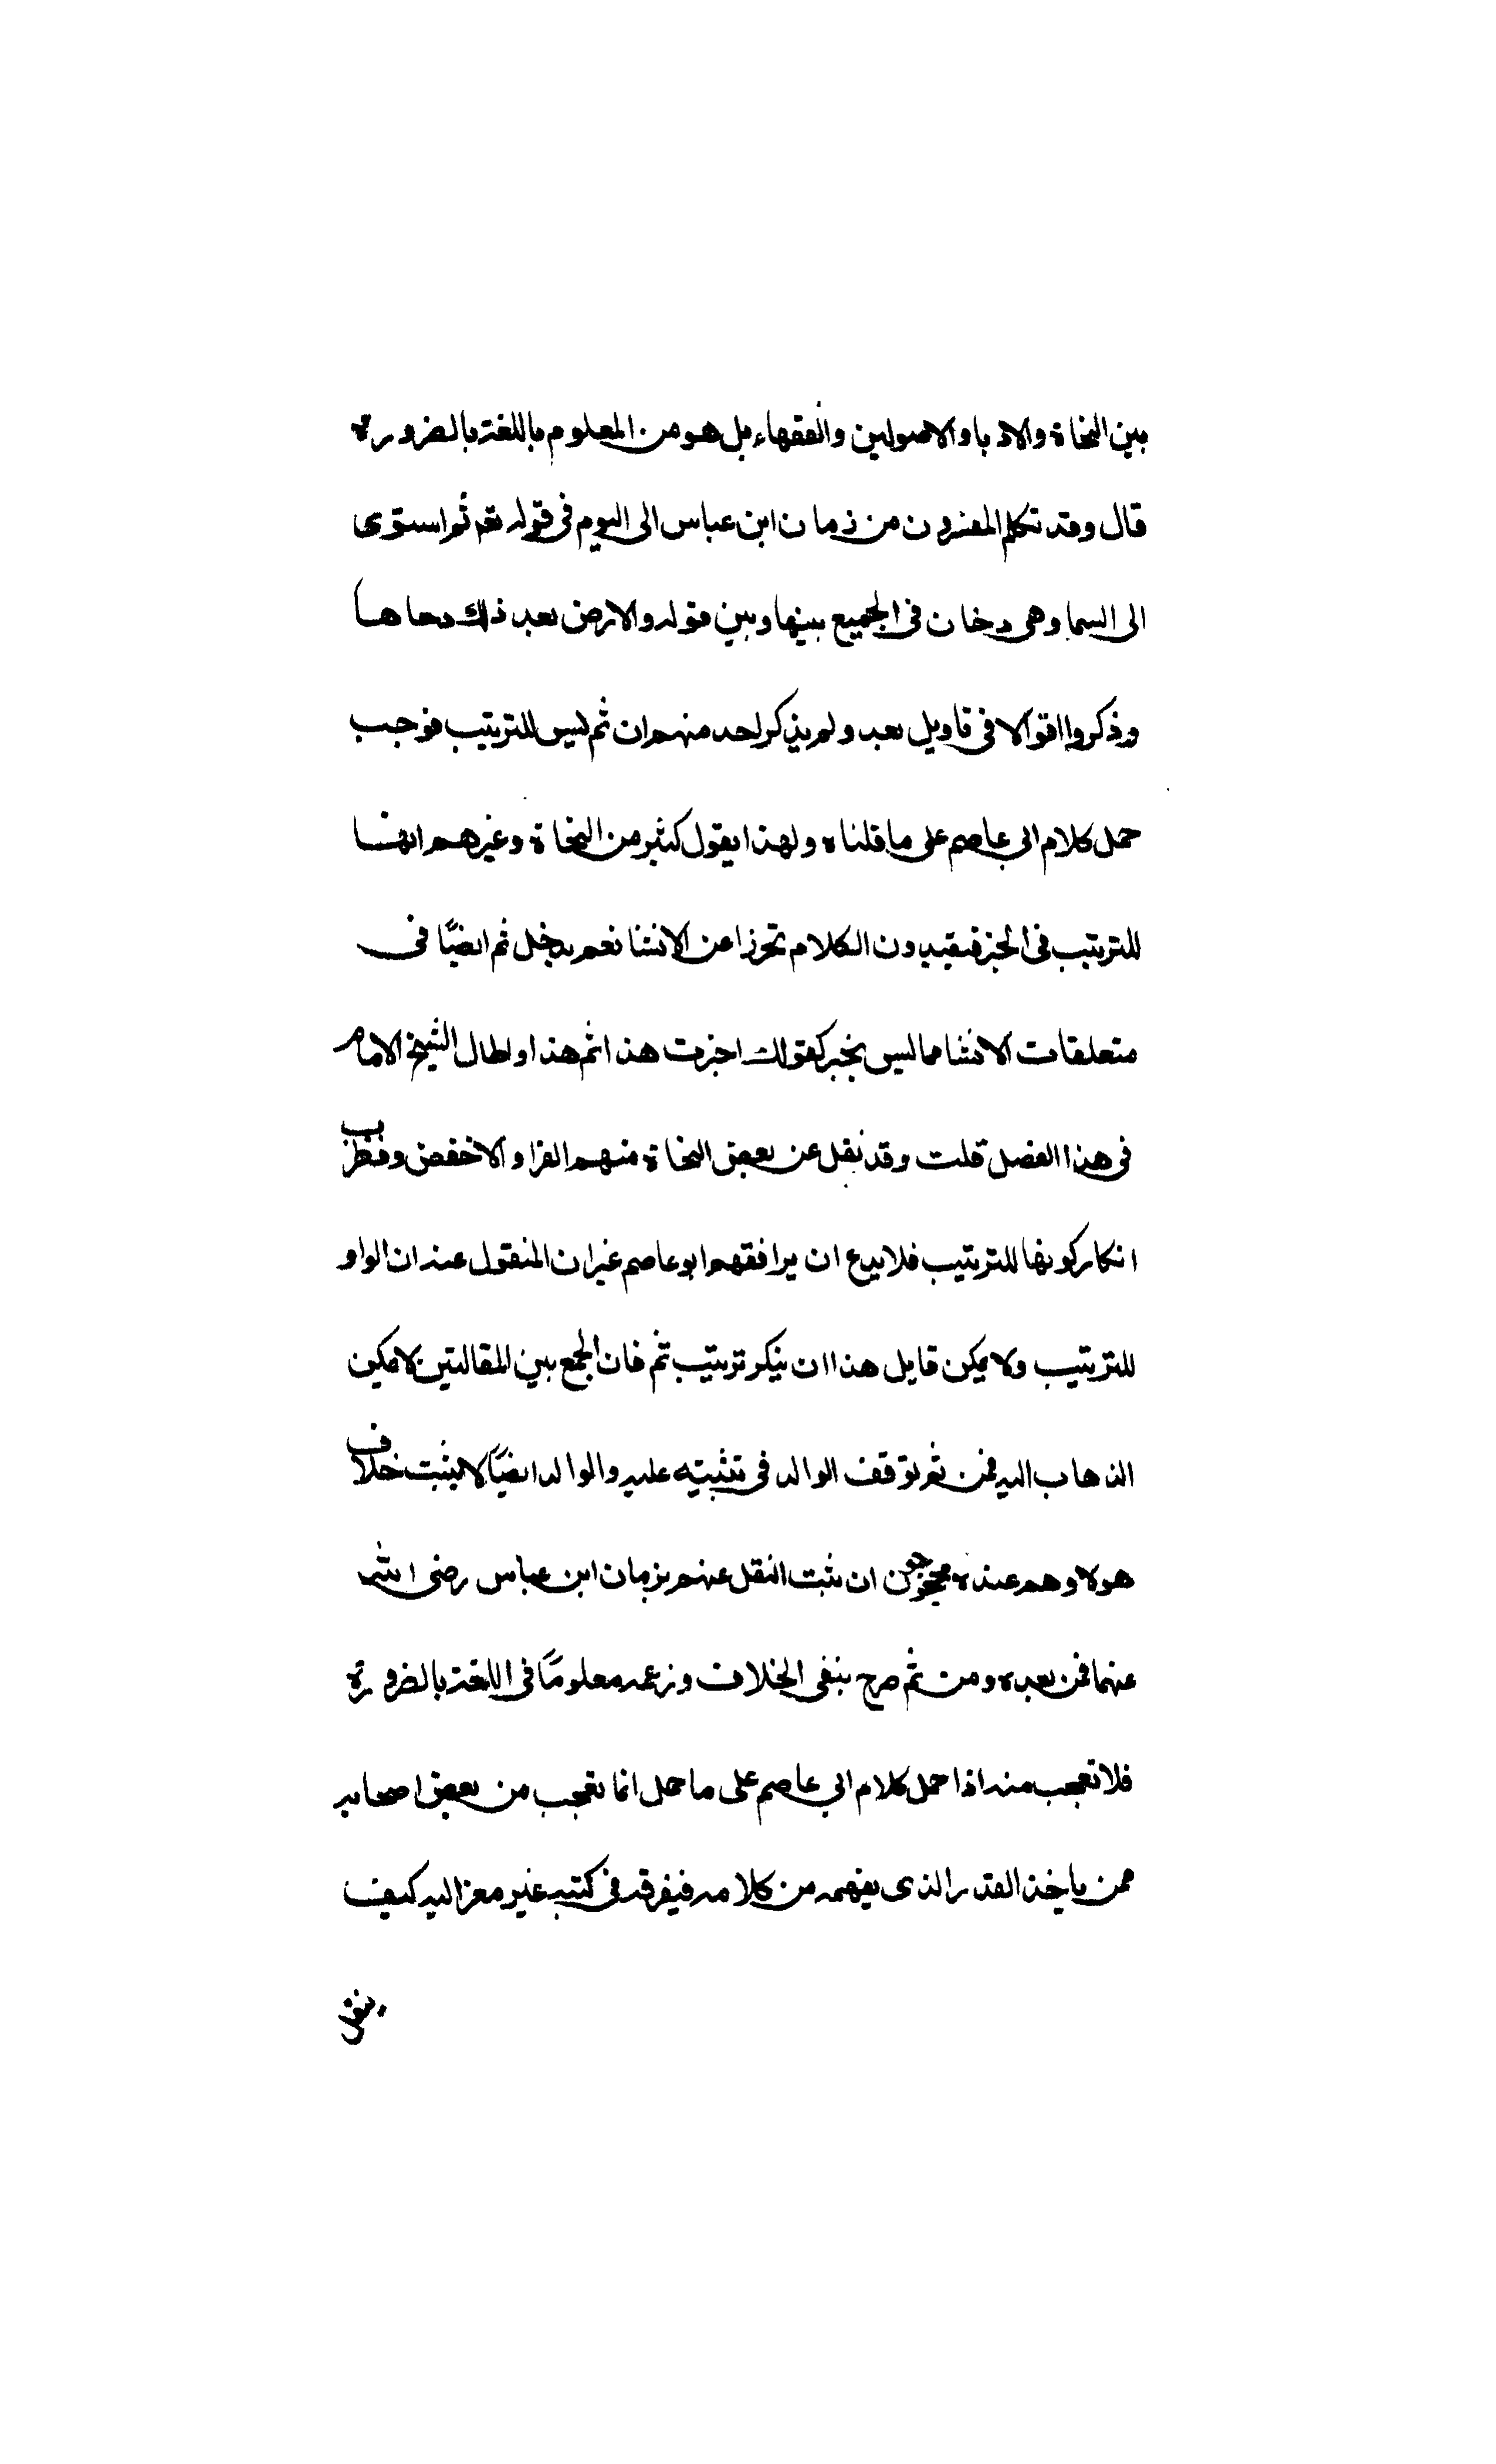 بين النحاة والادبا والاصوليين والفقهاء بل هو من المعلوم باللغة بالضرورة
قال وقد تكلم المفسرون من زمان ابن عباس الى اليوم فى قوله تعم ثم استوى
الى السما وهى دخان فى الجميع بينها وبين قوله والارض بعد ذلك دحاها
وذكروا اقوالا فى تاويل بعد ولم يذكر احد منهم ان ثم ليس للترتيب فوجب
حمل كلام ابي عاصم على ما قلناه ولهذا يقول كثير من النحاة وغيرهم انها
للترتيب فى الخبر فيقيدون الكلام تحرزا عن الانشا نعم يدخل ثم ايضًا فى
متعلقات الانشا مما ليس بخبر كقولك اجزت هذا ثم هذا واطال الشيخ الامام
فى هذا الفصل قلت وقد نقل عن بعض النحاة منهم الفرا والاخفض وقطرب
انكار كونها للترتيب فلا يدع ان يرافقهم ابو عاصم غير ان المنقول عنه ان الواو
للترتيب ولا يمكن قايل هذا ان ينكر ترتيب ثم فان الجمع بين المقالتين لا يمكن
الذهاب اليه فمن ثم توقف الوالد فى تثبيته عليه والوالد ايضًا لا يثبت خلاف
هولا وهم عنده محجوجون ان ثبت النقل عنهم بزمان ابن عباس رضى الله
عنهما فمن بعده ومن ثم صرح بنفى الخلاف وزعمه معلومًا فى اللغة بالضرورة
فلا تعجب منه اذا حمل كلام ابي عاصم على ما حمل انما تعجب من بعض اصحابه
ممن ياخذ القدر الذى يفهمه من كلامه فيفرقه فى كتبه غير معز اليه كيف